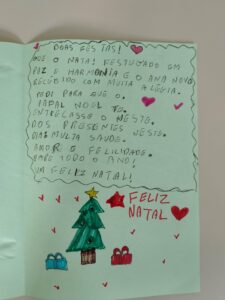 BOAS FESTAS!
QUE O NATAL FESTEJADO EM
PAZ E HARMONIA E O ANO NOVO
RECEBIDO COM MUITA ALEGRIA.
PEDE PARA QUE O
PAPAL NOEL TE.
ENTREGASSE O NESTE.
DOS PRESENTES NESTE.
DIA: MUITA SAUDE.
AMOR E FELICIDADE.
PARE TODO O ANO!
UM FELIZ NATAL!
FELIZ
NATAL